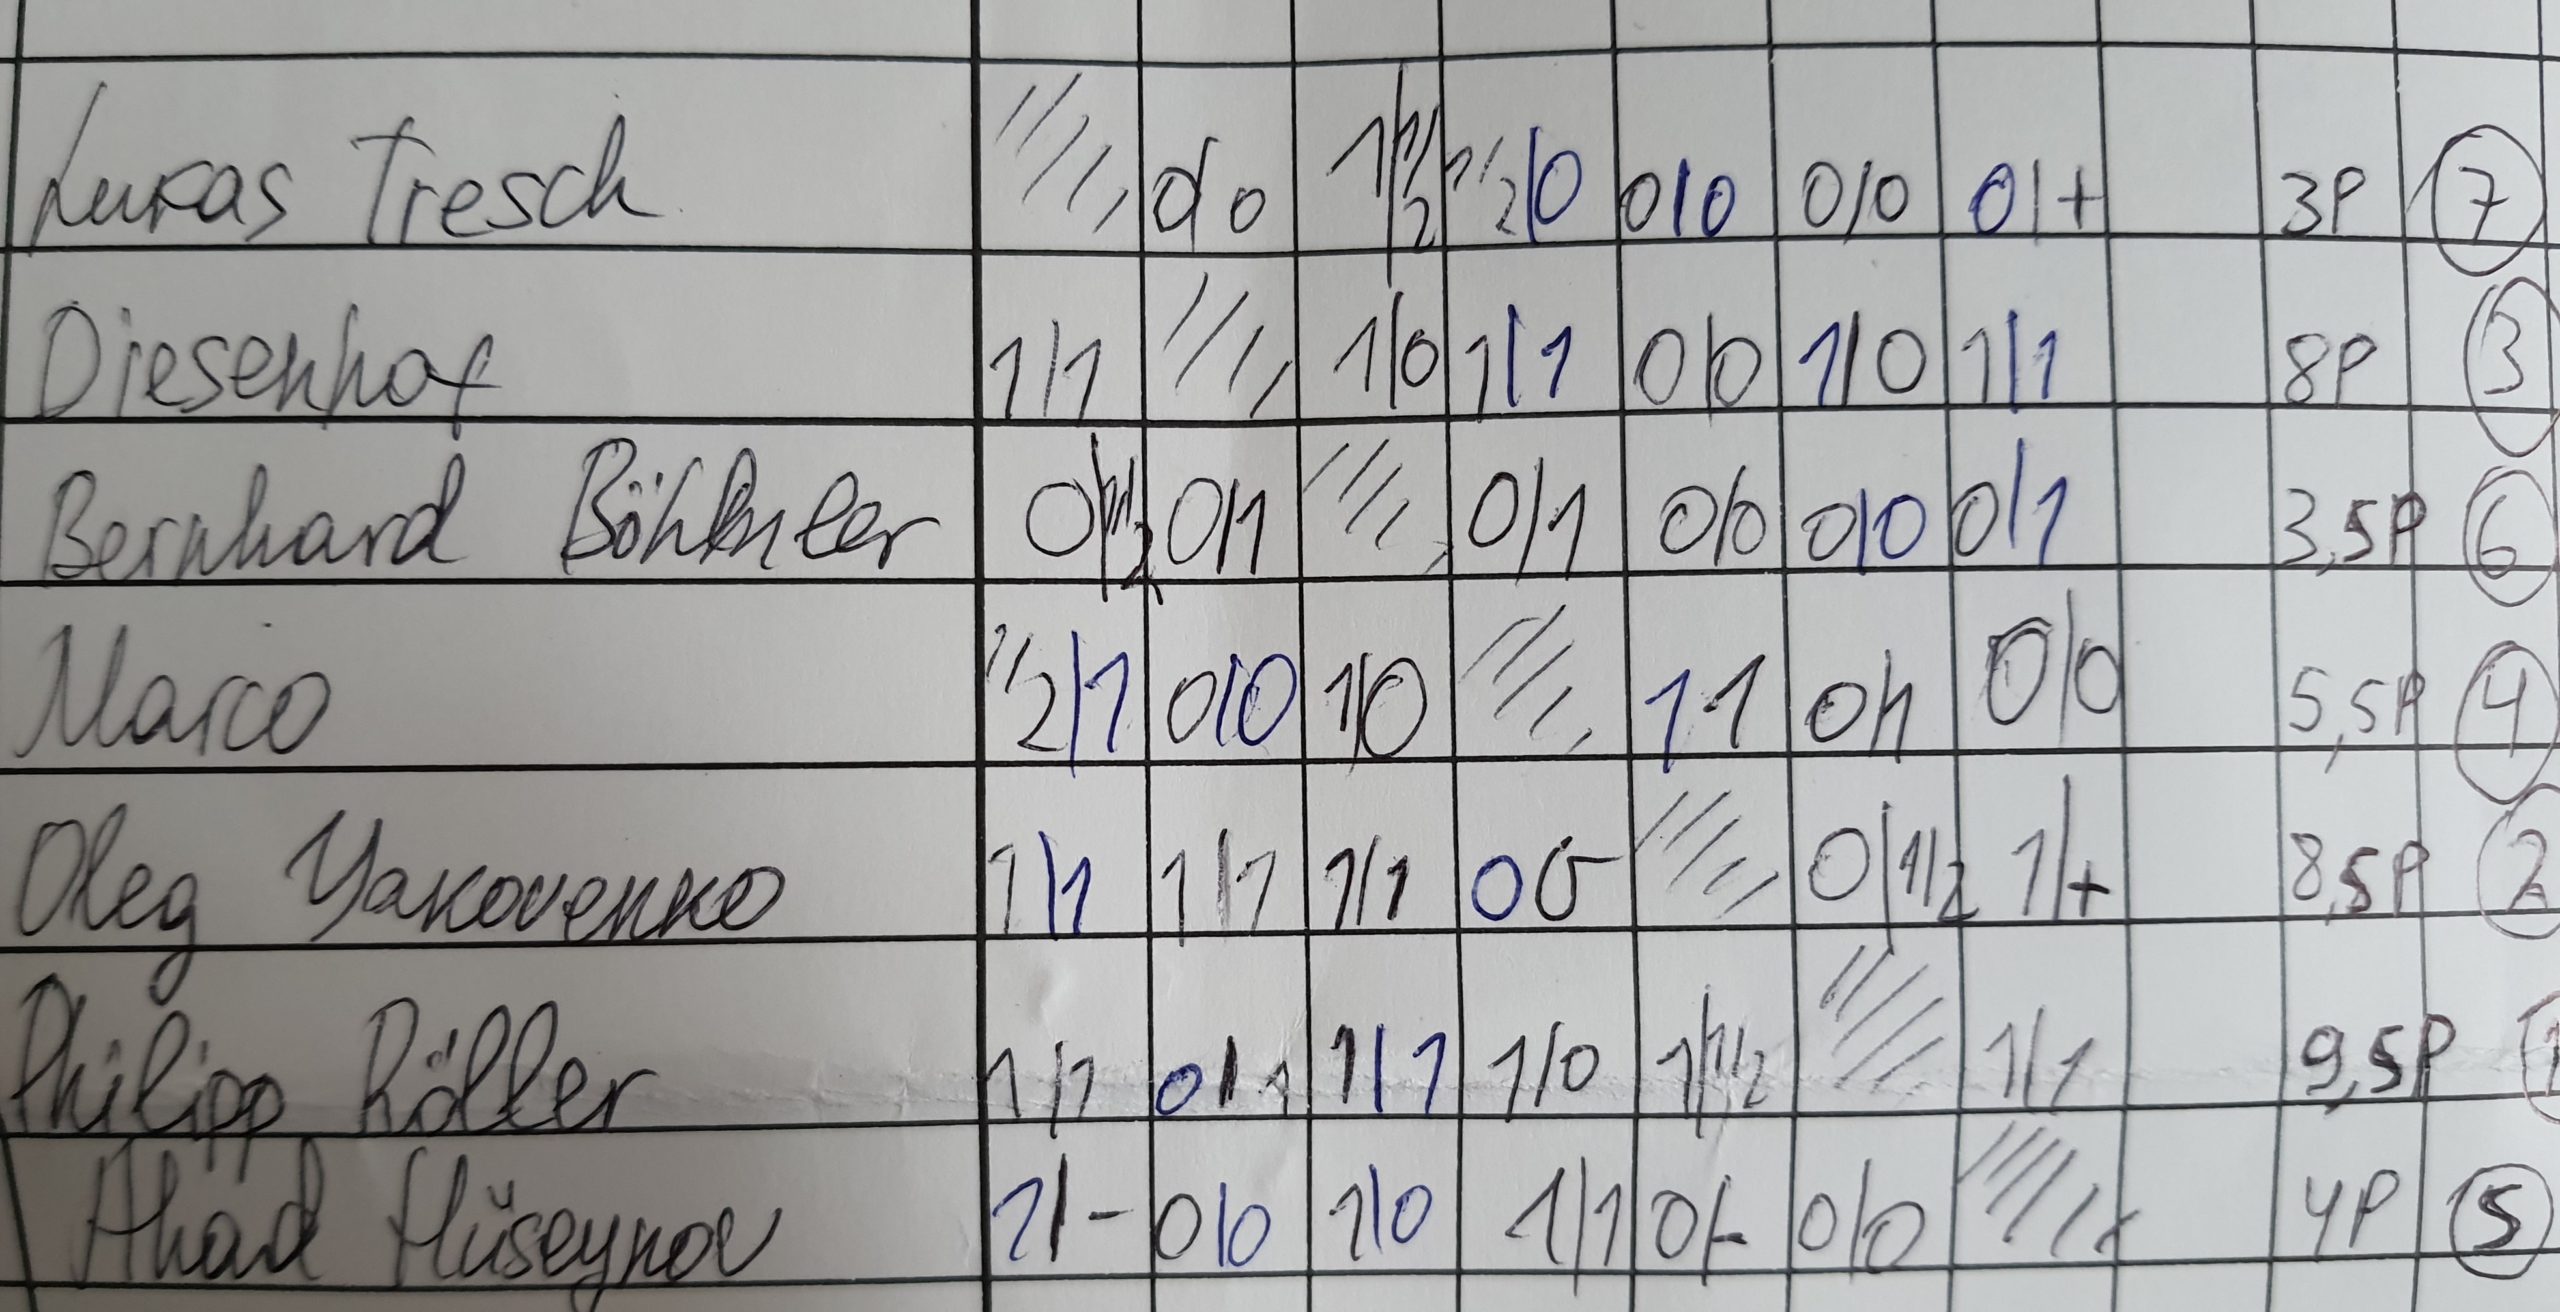 Lukas Tresch 0/0 1/½ ½/0 0/0 0/0 0/+ 3P 7
Diesenhof 1/1 1/0 1/1 0/0 1/0 1/1 8P 3
Bernhard 0/½ 0/1 0/1 0/0 0/0 0/1 3,5P 6
Marco ½/1 0/0 1/0 1 1 0/1 0/0 5,5P 4
Oleg Yakovenko 1/1 1/1 1/1 0 0 0/½ 1/+ 8,5P 2
Philipp Röller 1/1 0/1 1/1 1/0 1/½ 1/1 9,5P 1
Ahad Hüseynov 1/- 0/0 1/0 1/1 0/- 0/0 4P 5